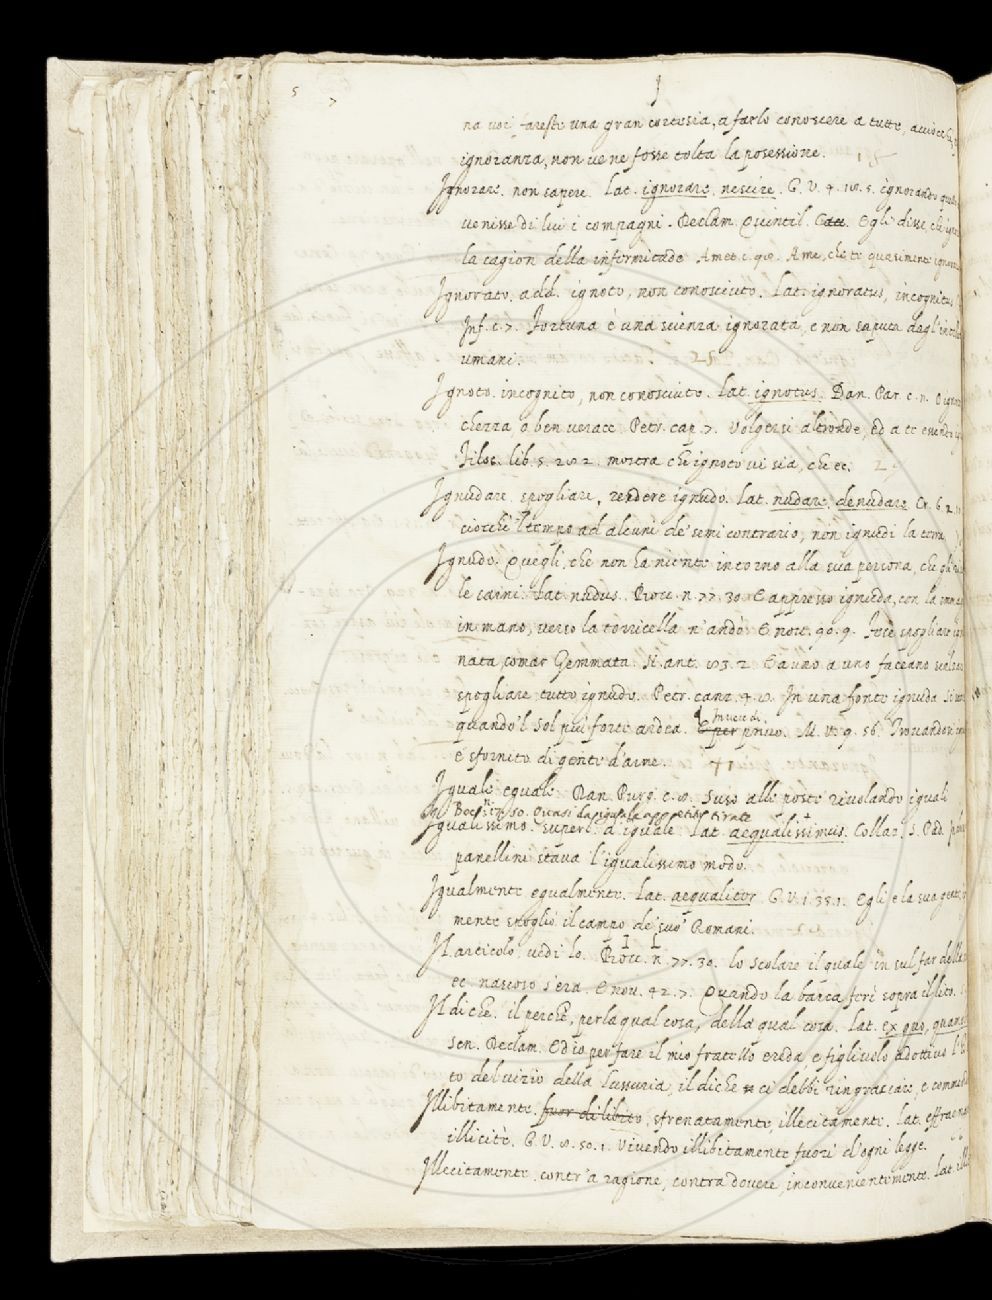 5 7
I
na voi fareste una gran cortesia, a farlo conoscere a tutti, accioche
ignoranza, non ve ne fosse tolta la posessione.
Ignorare. non sapere. Lat. ignorare, nescire. G. V. 4. 18. 5. ignorando
venisse di lui i compagni. Declam. Quintil. Egli disse, che
la cagion della infermitade Amet. c. 98. A me, che te quasimente
Ignorato. add. ignoto, non conosciuto. Lat. ignoratus, incognitus
Inf. c. 7. Fortuna è una scienza ignorata, e non saputa dagl'
umani.
Ignoto. incognito, non conosciuto. Lat. ignotus. Dan. Par. c. 11. O
chezza, o ben verace Petr. cap. 7. Volgersi altronde, ed a te essendo
Filoc. lib. 5. 202. mostra che ignoto vi sia, che ec.
Ignudare. spogliare, rendere ignudo. Lat. nudare, denudare Cr. 6
ciocchè 'l tempo ad alcuni de' semi contrario, non ignudi la terra
Ignudo. Quegli, che non ha niente intorno alla sua persona, che gli
le carni. Lat. nudus. Bocc. n. 77. 30. E appresso ignuda, con la
in mano, verso la torricella n'andò E nov. 90. 9. Fece spogliare
nata, comar Gemmata. N. ant. 83. 2. E a uno a uno faceano
spogliare tutto ignudo. Petr. canz. 4. 8. In una fonte ignuda
quando 'l Sol più forte ardea. In vece di
E per privo. M. V. 9. 56. Trovandosi
e sfornito di gente d'arme.
Iguale eguale. Dan. Purg. c. 8. Suso alle poste rivolando iguali
Quasi da iguale appetito tirate
Igualissimo. superl. d'iguale. Lat. aequalissimus. Collaz. S. Pad.
panellini stava l'igualissimo modo.
Igualmente egualmente. Lat. aequaliter G. V. 1. 35. 1. Egli e la sua gente
mente spogliò il campo de' suo' Romani.
Il. articolo, vedi lo. Bocc. n. 77. 30. lo scolare il quale in sul far della
ec. nascoso s'era. E nov. 42. 7. Quando la barca ferì sopra il lito.
Il di che. il perchè, per la qual cosa, della qual cosa. Lat. ex quo,
Sen. Declam. Ed io per fare il mio fratello ereda, e figliuolo adottivo
to del vizio della Lussuria, il di che ci debbi ringraziare, e
Illibitamente. fuor di libito, sfrenatamente, illecitamente. Lat.
illicitè. G. V. 8. 50. 1. Vivendo illibitamente fuori d'ogni legge.
Illecitamente. contr'a ragione, contra dovere, inconvenientemente. Lat.